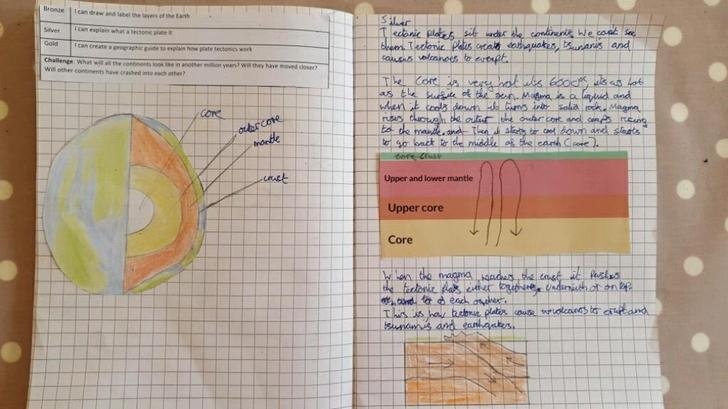 Bronze I can draw and label the layers of the Earth
Silver I can explain what a tectonic plate it
Gold I can create a geographic guide to explain how plate tectonics work
Challenge: What will all the continents look like in another million years? Will they have moved closer?
Will other continents have crashed into each other?
core
outer core
mantle
crust
Silver
Tectonic plates sit under the continents. We cant see
them. Tectonic plates create eathquakes, tsunamis and
causes volcanoes to erupt.
The Core is very hot its 6000°c its as hot
as the surface of the sun. Magma is a liquid and
when it cools down it turns into solid rock. Magma
rises through the outer the outer core and rising
to the mantle and Then it starts to cool down and starts
to go back to the middle of the earth (core).
crust
Upper and lower mantle
Upper core
Core
When the magma reaches the crust it Pushes
the tectonic plates either together, underneath or on top
of each other.
This is how tectonic plates cause volcanos to erupt and
tsunamis and earthqakes.